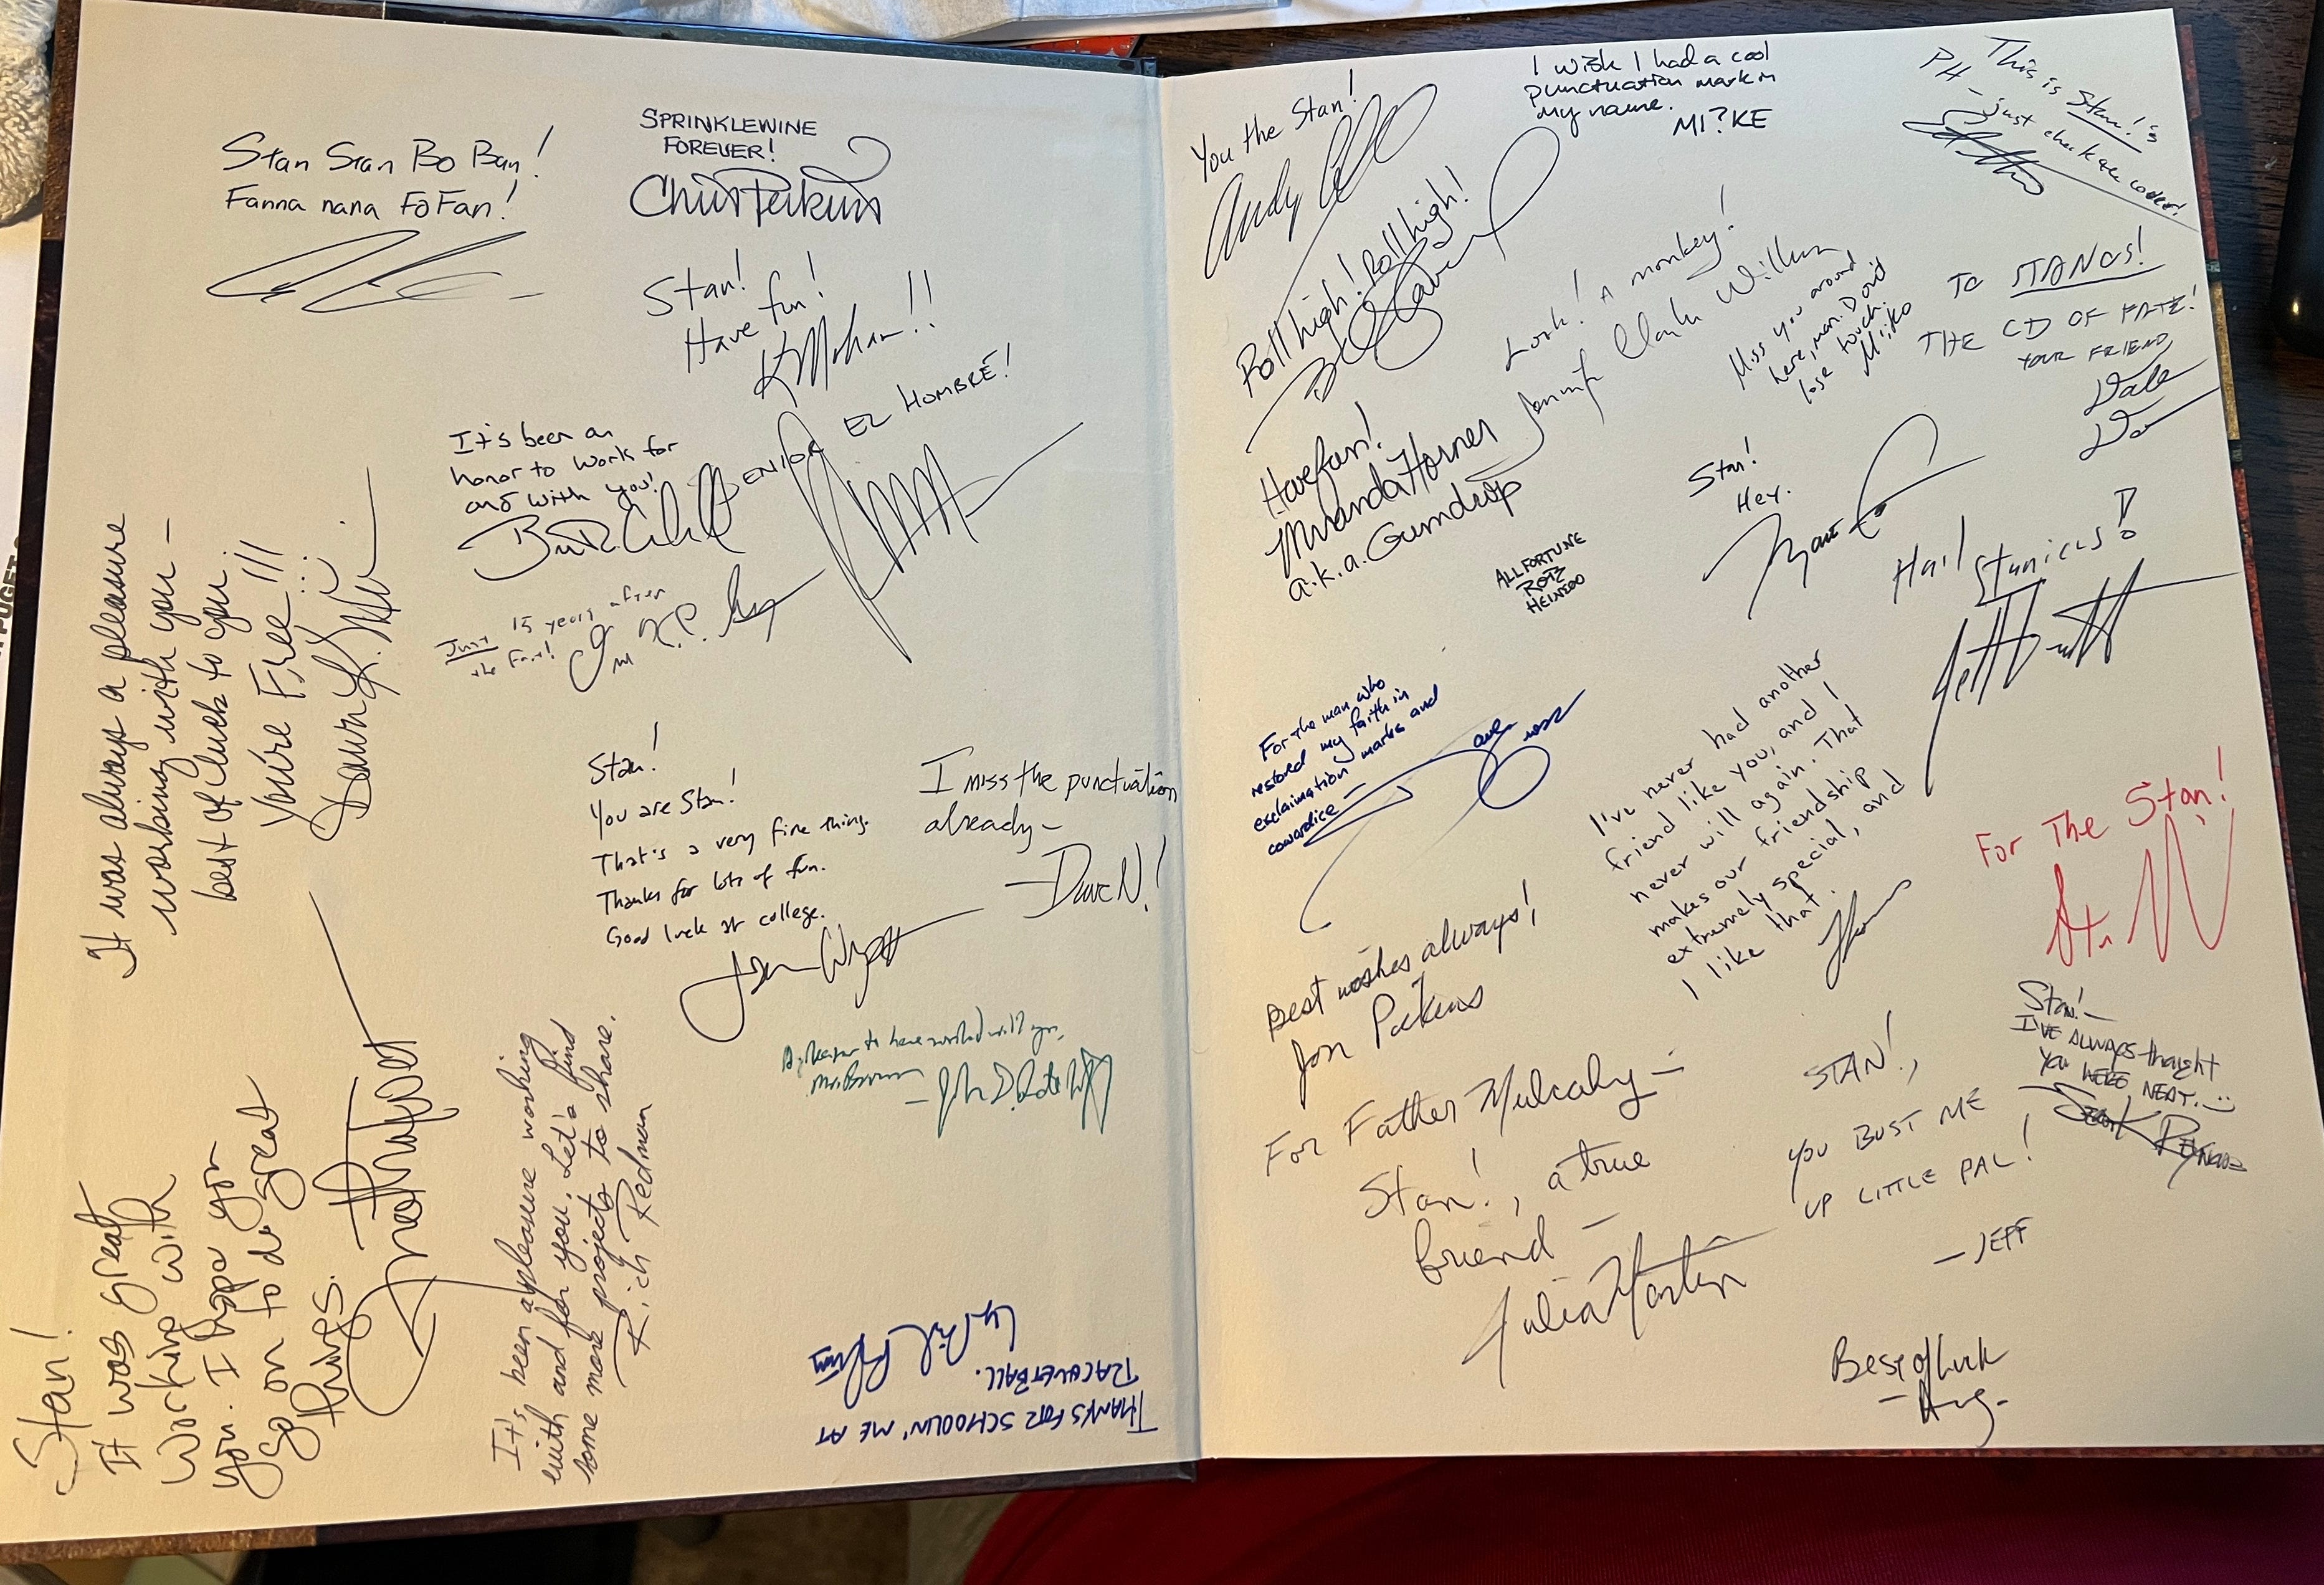 Stan Stan Bo Ban!
Fanna nana Fo Fan!
SPRINKLEWINE
FOREVER!
Chris Perkins
Stan!
Have fun!
EL HOMBRÉ!
It's been an
honor to work for
and with you!
Just 15 years after
the fact!
It was always a pleasure
working with you –
best of luck to you.
You're Free!!!
Stan!
You are Stan!
That's a very fine thing.
Thanks for lots of fun.
Good luck at college.
Jason
I miss the punctuation
already –
– Dave N!
A pleasure to have worked with you,
Mr. Brown
– John D. Rateliff
Stan!
It was great
working with
you. I hope you
go on to do great
things.
It's been a pleasure working
with and for you. Let's find
some more projects to share.
Rich Redman
THANKS FOR SCHOOLIN' ME AT
RACQUETBALL.
You the Stan!
Andy
I wish I had a cool
punctuation mark in
my name.
MI?KE
This is Stan!'s
PH – just check the codes!
Roll high! Roll high!
Look! A monkey!
Jennifer Clarke Wilkes
Miss you around
here, man. Don't
lose touch.
TO STANCS!
THE CD OF FATE!
YOUR FRIEND,
Dale
Have fun!
Miranda Horner
a.k.a. Gumdrop
Stan!
Hey.
ALL FORTUNE
Hail
For the man who
restored my faith in
exclamation marks and
cowardice –
I've never had another
friend like you, and I
never will again. That
makes our friendship
extremely special, and
I like that.
For The Stan!
Best wishes always!
Jon Pickens
Stan! –
I'VE ALWAYS thought
YOU WERE NEAT.
For Father Mulcahy –
Stan!, a true
friend –
Julia Martin
STAN!,
YOU BUST ME
UP LITTLE PAL!
– JEFF
Best of Luck